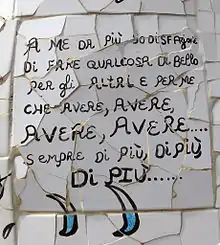 A ME DA PIÙ SODISFAZIONE
DI FARE QUALCOSA DI BELLO
PER GLI ALTRI E PER ME
CHE AVERE, AVERE,
AVERE, AVERE....
SEMPRE DI PIÙ, DI PIÙ
DI PIÙ......